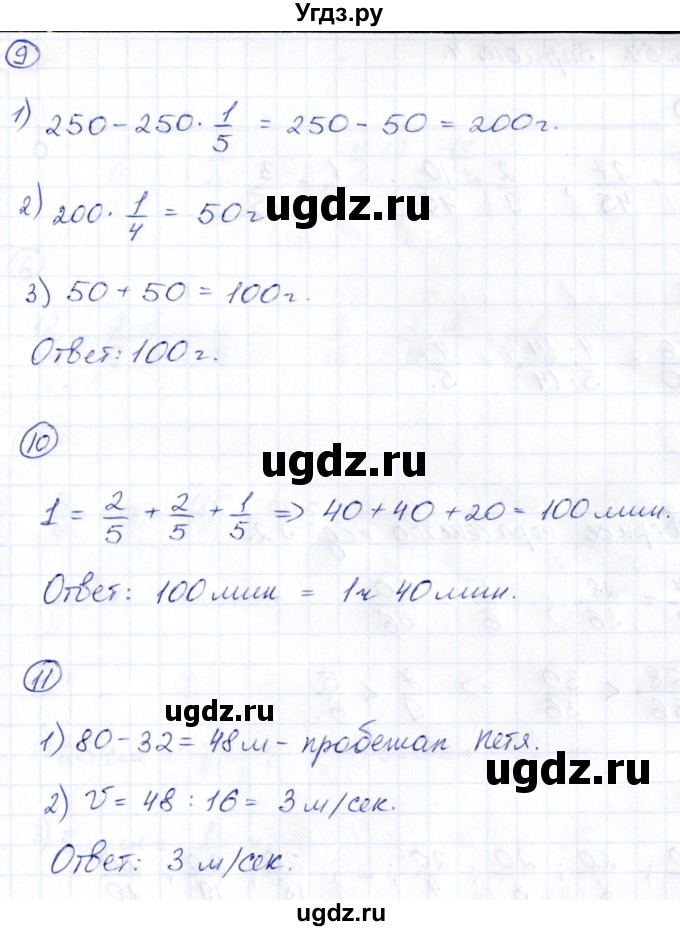 Угдз.ру
9
1) 250 - 250 · 1/5 = 250 - 50 = 200 г.
2) 200 · 1/4 = 50 г
ugdz.ru
3) 50 + 50 = 100 г.
Ответ: 100 г.
10
ugdz.ru
1 = 2/5 + 2/5 + 1/5 => 40 + 40 + 20 = 100 мин.
Ответ: 100 мин = 1ч 40 мин.
11
ugdz.ru
1) 80 - 32 = 48 м - пробежал Петя.
ugdz.ru
2) V = 48 : 16 = 3 м/сек.
Ответ: 3 м/сек.
ugdz.ru